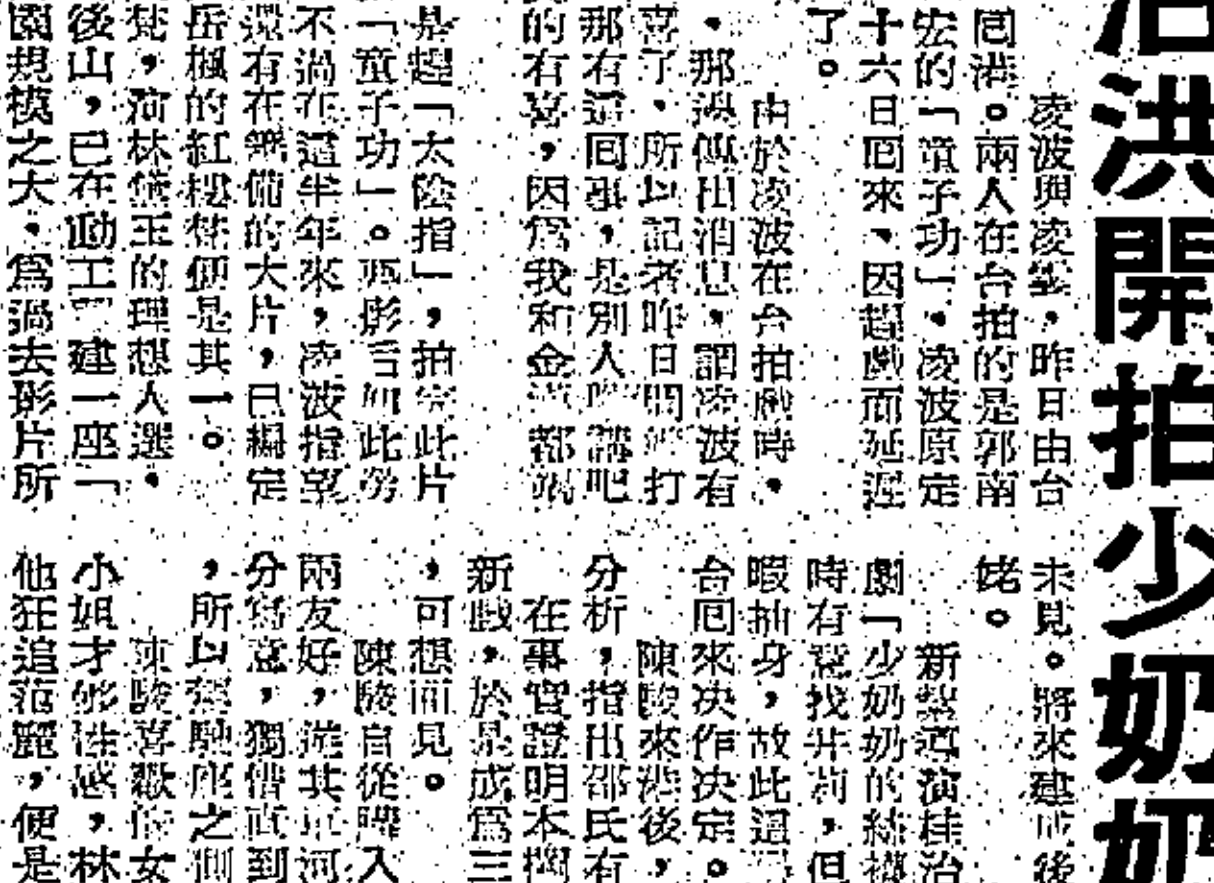 洪開拍少奶奶
凌波與凌雲,昨日由台
回港。兩人在台拍的是郭南
宏的「童子功」,凌波原定
十六日回來,因趕戲而延遲
了。
由於凌波在台拍戲時,
,那邊傳出消息,謂凌波有
喜了,所以記者昨日開打
那有這回事,是別人講吧
的有喜,因為我和金都
是趕「太陰指」,拍完此片
「童子功」。兩影后如此
不過在這半年來,凌波指望
還有在籌備的大片,已編定
岳楓的紅樓梦便是其一。
梵,演林黛玉的理想人選,
後山,已在動工建一座「
園規模之大,為過去影片所
未見。將來建成後
姥。
新導演桂治
劇「少奶奶的絲襪
時有意找井莉,但
暇抽身,故此還
台回來决作决定。
陳駿來港後,
分析,指出邵氏有
在事實證明本
新戲,於是成為三
,可想而見。
陳駿自從入
兩友好,從其河
分寫意,獨個直到
,所以座之
陳駿喜歡的女
小姐才够性感,林
他狂追范麗,便是